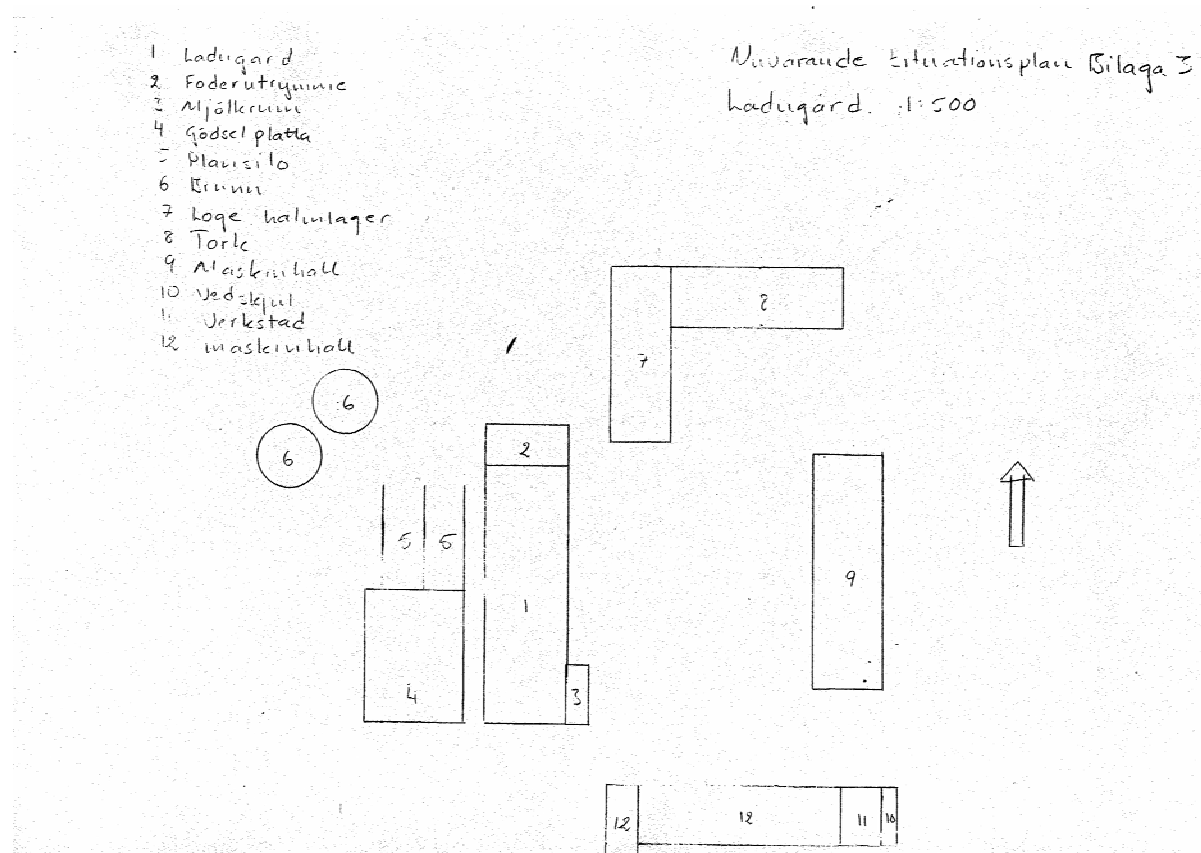 1 Ladugård
2 Foderutrymme
3 Mjölkrum
4 Gödselplatta
5 Plansilo
6 Brunn
7 Loge halmlager
8 Tork
9 Maskinhall
10 Vedskjul
11 Verkstad
12 maskinhall
Nuvarande Situationsplan Bilaga 3
Ladugård. 1:500
8
7
6
2
6
5 5
9
1
4
3
12
12
11
10